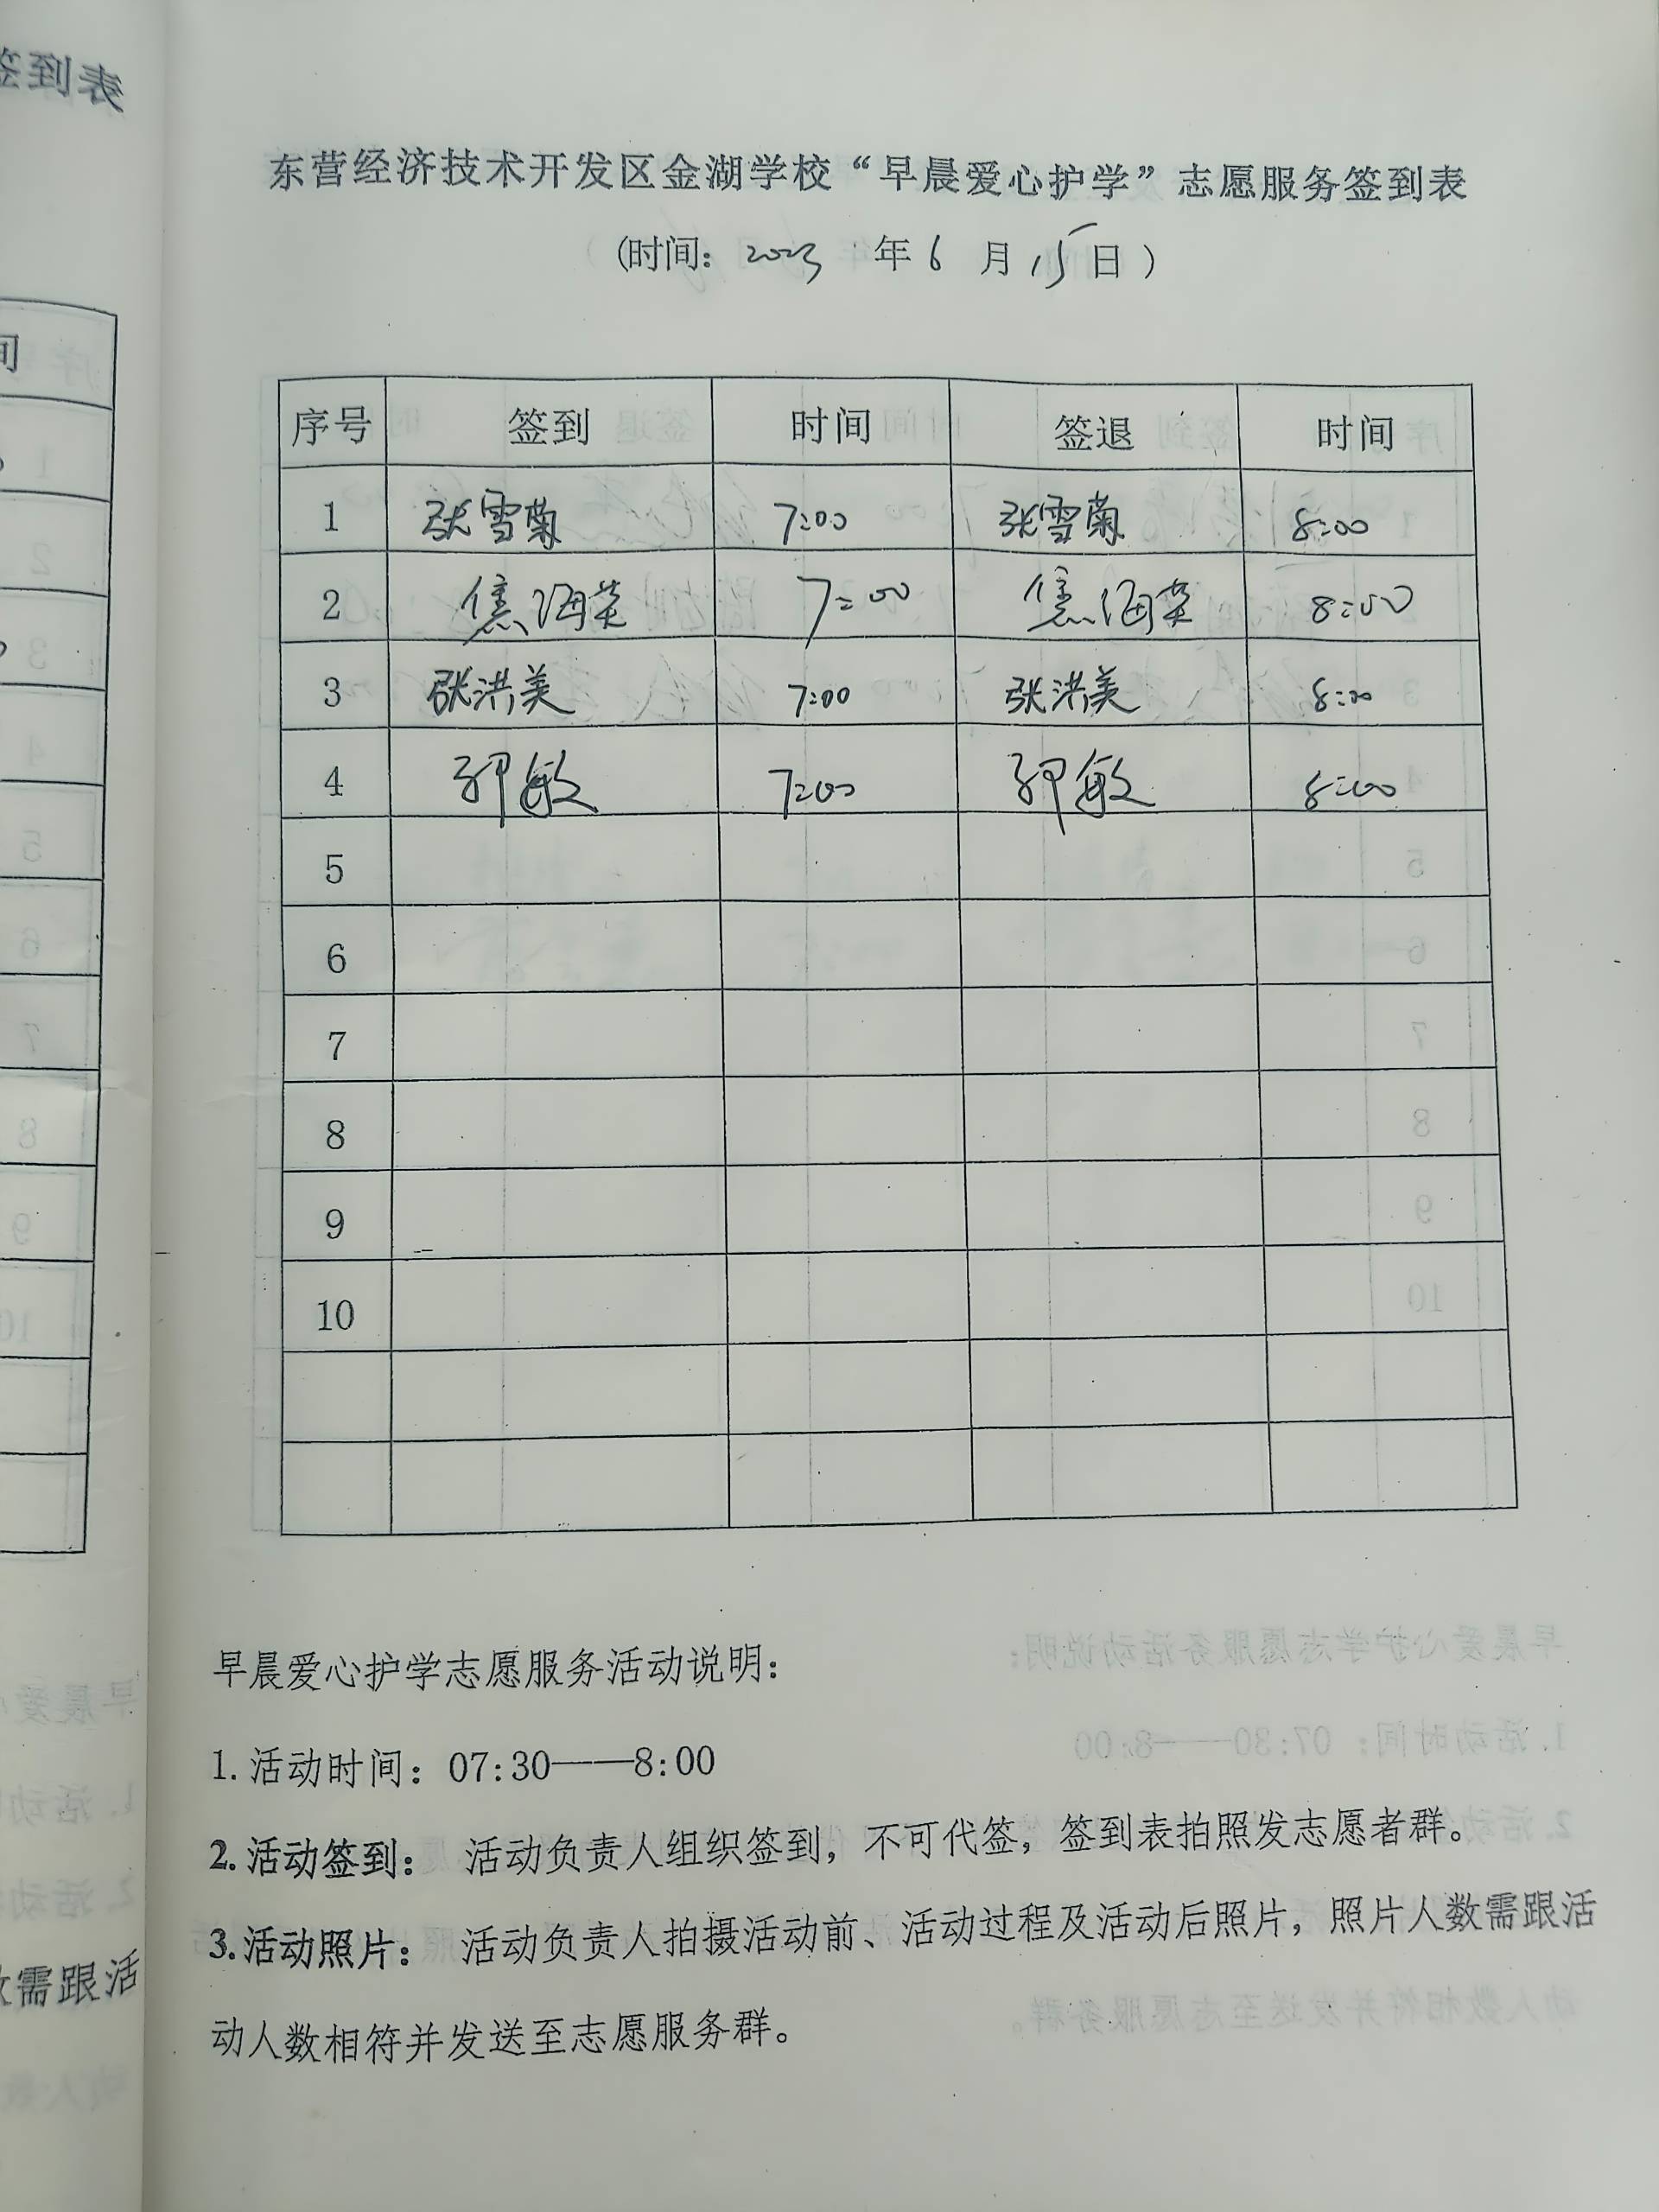 签到表
间
东营经济技术开发区金湖学校“早晨爱心护学”志愿服务签到表
(时间: 2023 年 6 月 15 日 )
序号 签到 时间 签退 时间
1 张雪菊 7:00 张雪菊 8:00
2 焦海英 7:00 焦海英 8:00
3 张洪美 7:00 张洪美 8:00
4 郭敏 7:00 郭敏 8:00
5
6
7
8
9
10
早晨爱心护学志愿服务活动说明:
1. 活动时间: 07:30——8:00
2. 活动签到: 活动负责人组织签到，不可代签，签到表拍照发志愿者群。
3. 活动照片: 活动负责人拍摄活动前、活动过程及活动后照片，照片人数需跟活
动人数相符并发送至志愿服务群。
需跟活